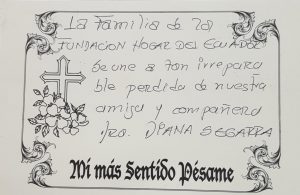 La Familia de la
FUNDACION HOGAR DEL ECUADOR
se une a tan irrepara
ble perdida de nuestra
amiga y compañera
DIANA SEGARRA
Mi más Sentido Pésame